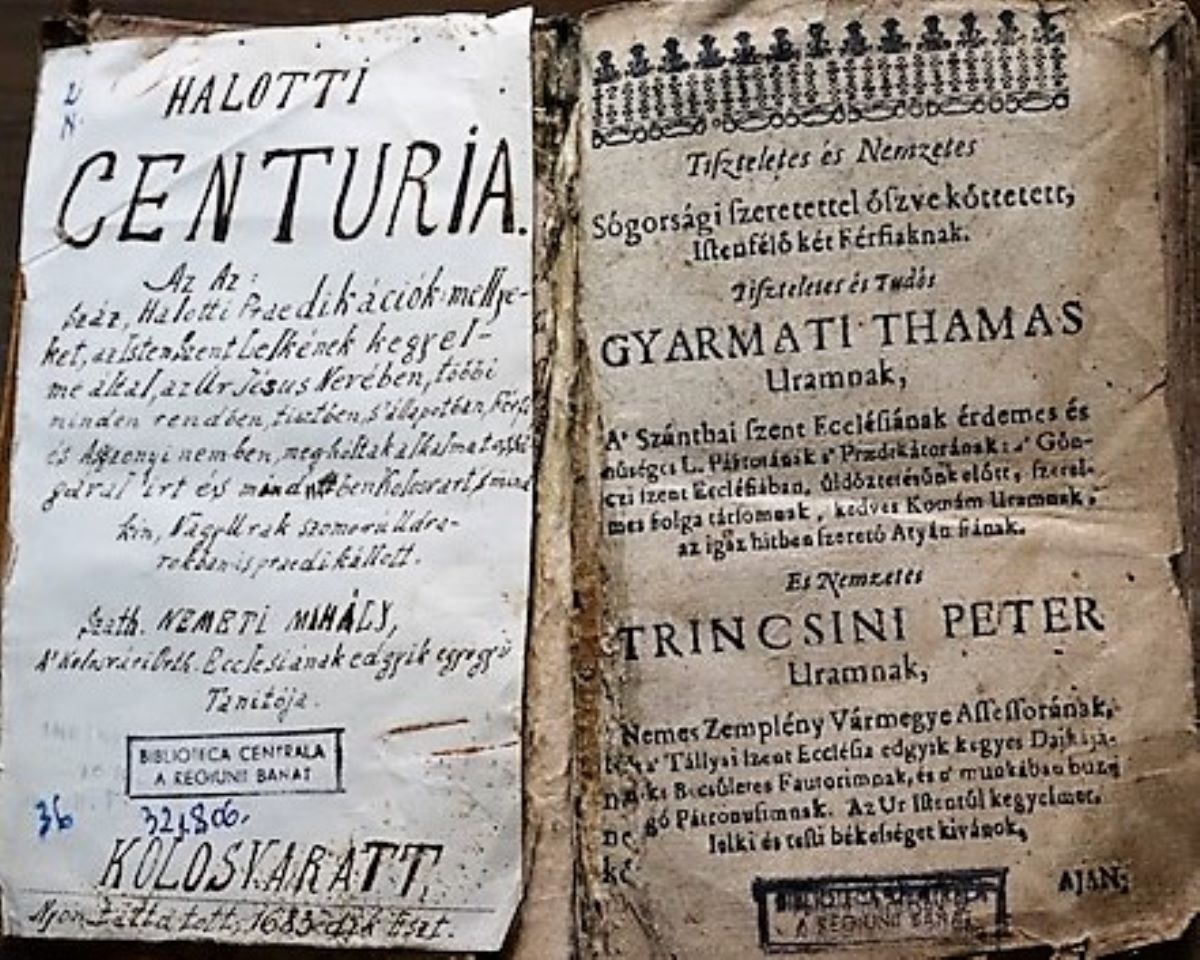 HALOTTI
CENTURIA.
Az Az:
Száz, Halotti Praedikációk: mellye-
ket, az Isten Szent Lelkének kegyel-
me által, az Úr Jésus Nevében, többi
minden rendben, tisztben, s' állapotban, Férfi
és Aszszonyi nemben, megholtak alkalmatossá-
gával irt és
ben Kolosvart, s' mind
kin, Nagy Urak szomorú Udva-
rokban is praedikállott.
Szath. NEMETI MIHÁLY,
A' Kolosvári Orth. Ecclesiának edgyik egygyü
Tanitója.
BIBLIOTECA CENTRALA
A REGIUNII BANAT
36 32,806.
KOLOSVARATT,
Nyomtattatott, 1683-dik Eszt.
Tiſzteletes és Nemzetes
Sógorsági ſzeretettel öſzve köttetett,
Iſtenfélő két Férfiaknak.
Tiſzteletes és Tudós
GYARMATI THAMAS
Uramnak,
A' Szánthai ſzent Eccléſiának érdemes és
hűséges L. Páſtorának s' Prædikátorának: a' Gön-
czi ſzent Eccléſiában, üldöztetéſünk előtt, ſzerel-
mes ſzolga tárſomnak, kedves Komám Uramnak,
az igaz hitben ſzerető Atyám fiának.
Es Nemzetes
TRINCSINI PETER
Uramnak,
Nemes Zemplény Vármegye Aſſeſſorának,
a' Tállyai ſzent Eccléſia edgyik kegyes Dajkájá-
nak: Becsületes Fautorimnak, és a' munkában buz-
gó Pátronuſimnak. Az Ur Iſtentől kegyelmet,
lelki és teſti békeſséget kivánok,
AJÁN-
BIBLIOTECA CENTRALA
A REGIUNII BANAT